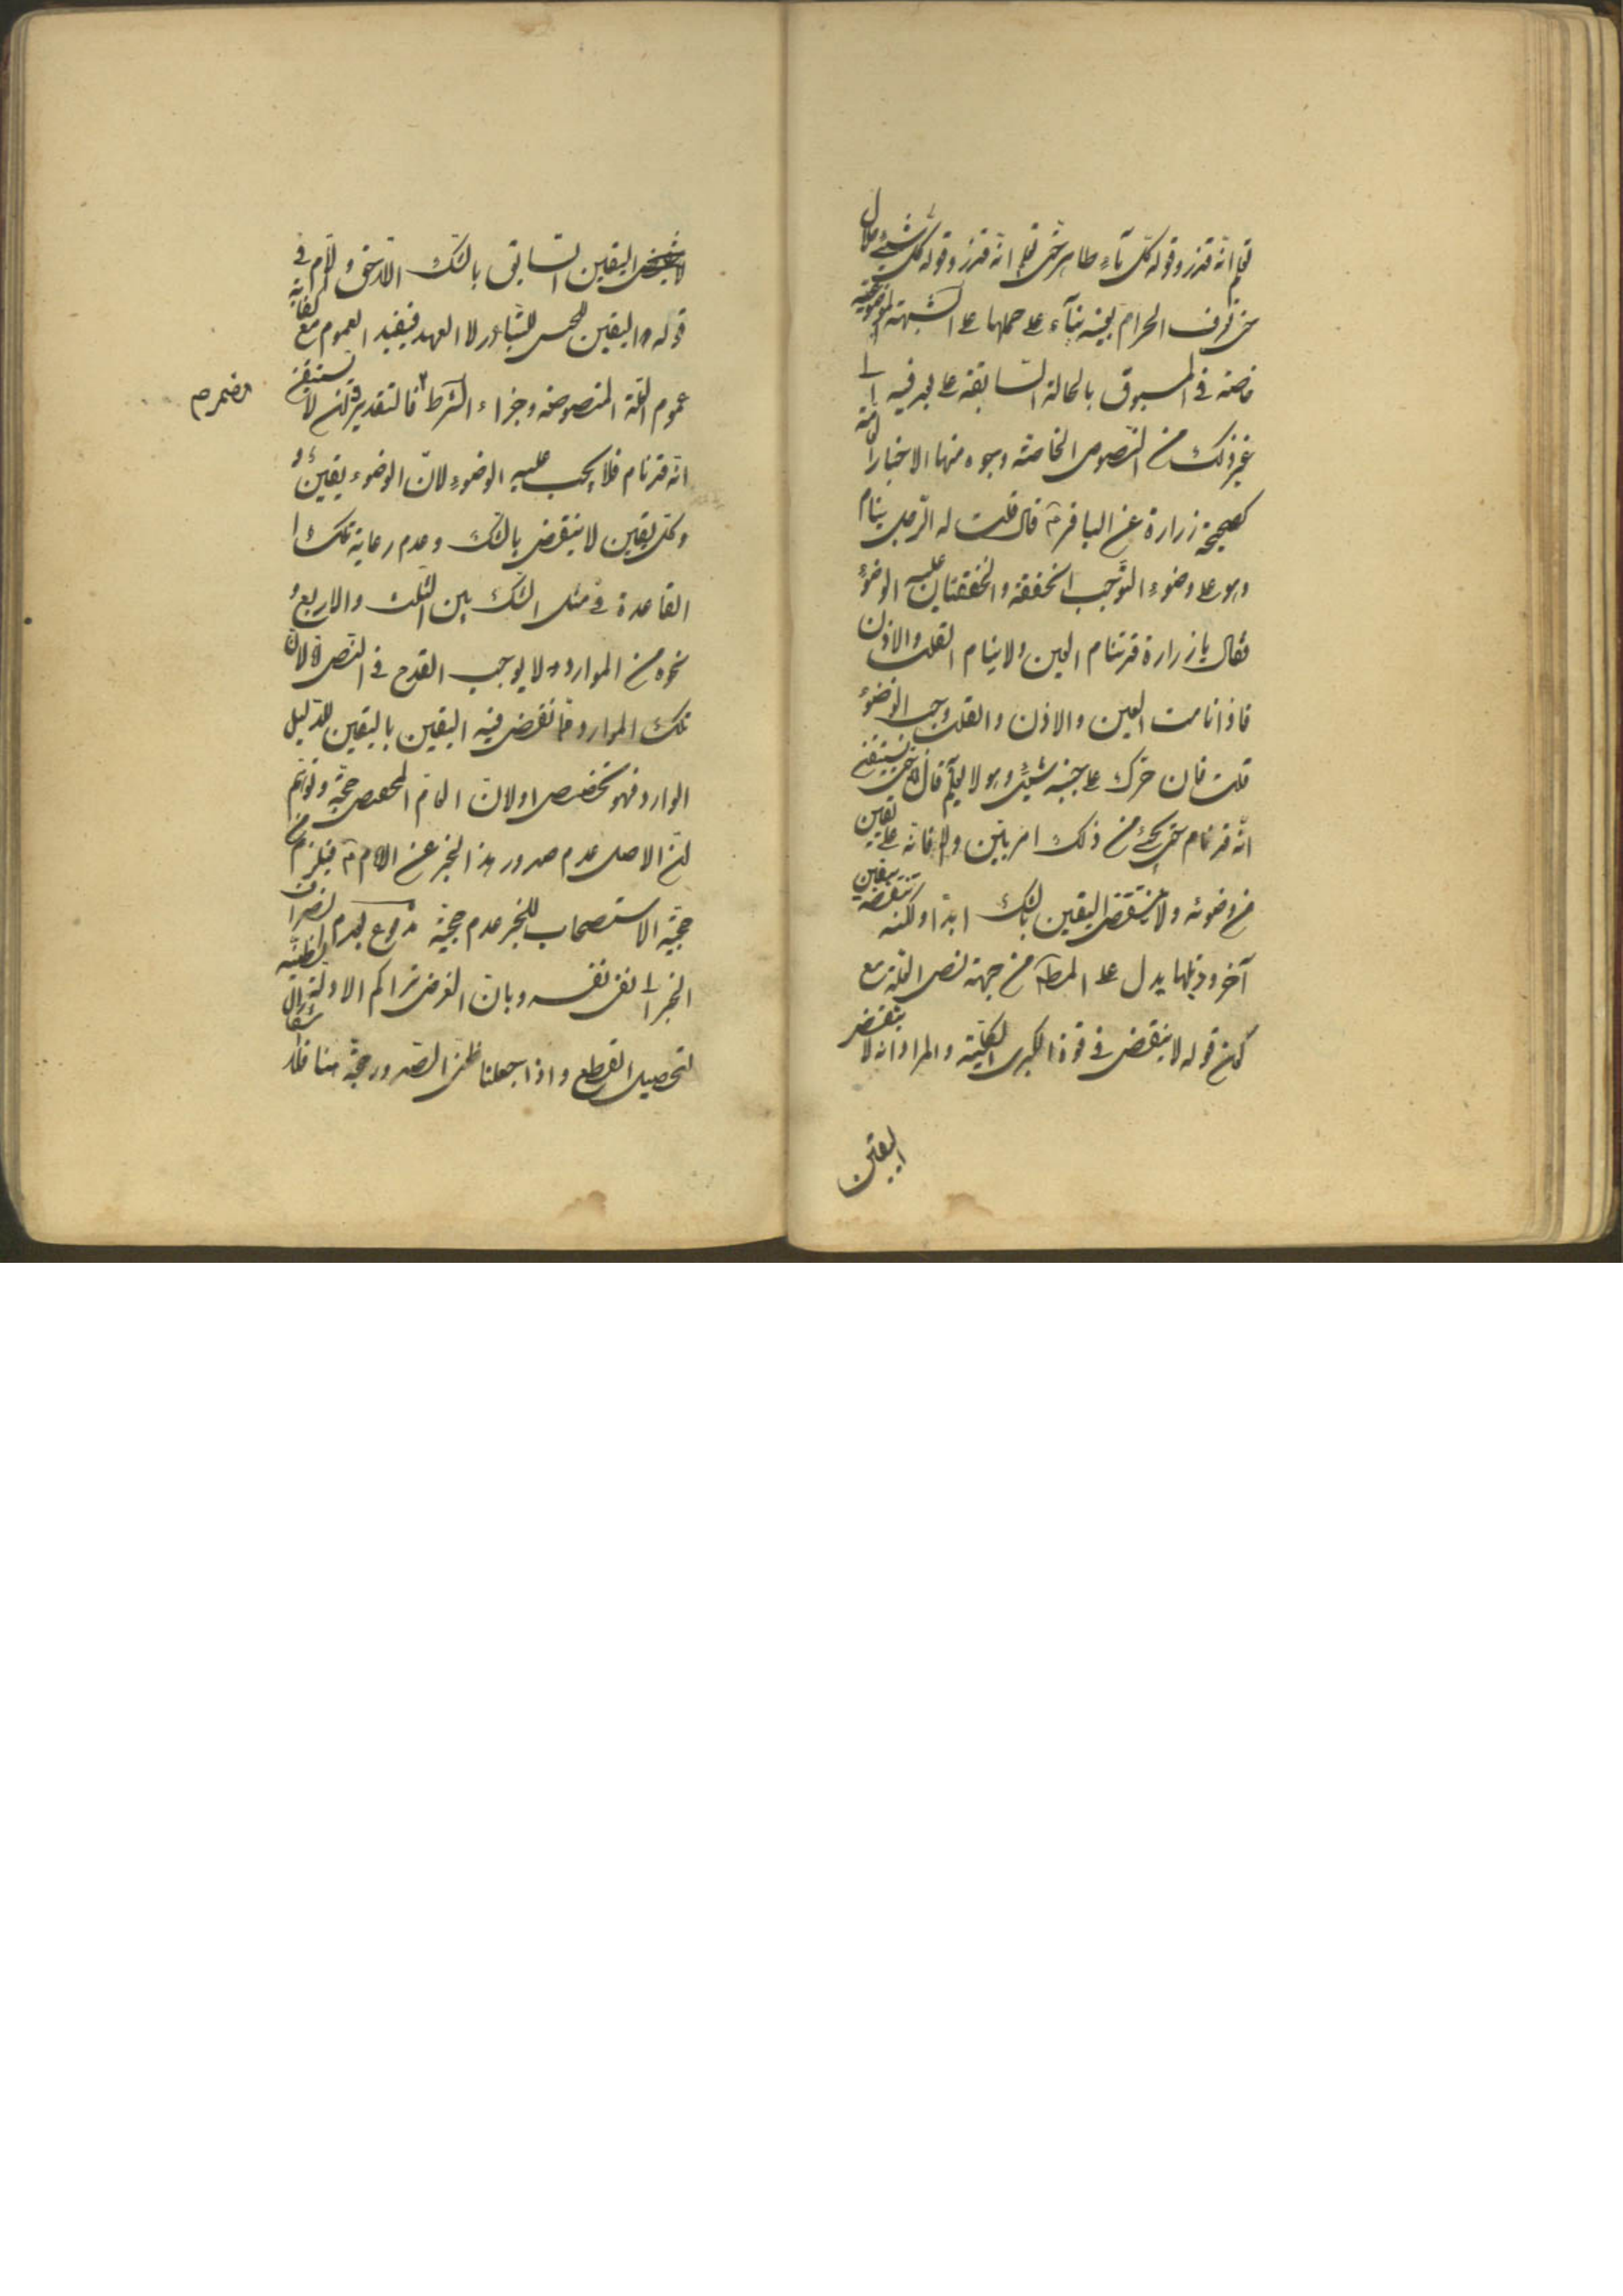 تعلم انه قذر وقوله كل ماء طاهر حتى تعلم انه قذر وقوله كل شيء حلال
حتى تعرف الحرام بعينه بناء على حملها على الشبهة الموضوعية
خاصة في المسبوق بالحالة السابقة على بعد فيه الى
غير ذلك من النصوص الخاصة وجوه منها الاخبار العامة
كصحيحة زرارة عن الباقر ع قال قلت له الرجل ينام
وهو على وضوء اتوجب الخفقة والخفقتان عليه الوضوء
فقال يا زرارة قد تنام العين ولا ينام القلب والاذن
فاذا نامت العين والاذن والقلب وجب الوضوء
قلت فان حرك على جنبه شيء وهو لا يعلم قال لا حتى يستيقن
انه قد نام حتى يجيء من ذلك امر بين والا فانه على يقين
من وضوئه ولا ينتقض اليقين بالشك ابدا ولكنه تنقضه بيقين
آخر وذيلها يدل على المط من جهة نص العلة مع
كون قوله لا ينقض في قوة الكبرى الكلية والمراد انه لا ينتقض
اليقين
لا ينقض اليقين السابق بالشك اللاحق ولام في
قوله اليقين للجنس للتبادر لا العهد فيفيد العموم مع كفاية
عموم العلة المنصوصة وجزاء الشرط فالتقدير فان لا يستيقن
مضمر م
انه قد نام فلا يجب عليه الوضوء لان الوضوء يقين و
وكل يقين لا ينتقض بالشك وعدم رعاية تلك ا
القاعدة في مثل الشك بين الثلث والاربع و
نحوه من الموارد لا يوجب القدح في النص لان
تلك الموارد مما نقض فيه اليقين باليقين للدليل
الوارد فهو تخصيص او لان العام المخصص حجة وتوهم
ان الاصل عدم صدور هذا الخبر عن الامام ع فيلزم من
حجية الاستصحاب للخبر عدم حجية مدفوع بعدم انصراف
الخبر الى نفي نفسه وبان الغرض تراكم الادلة الظنية
لتحصيل القطع واذا جعلنا ظن الصدور حجة مناط